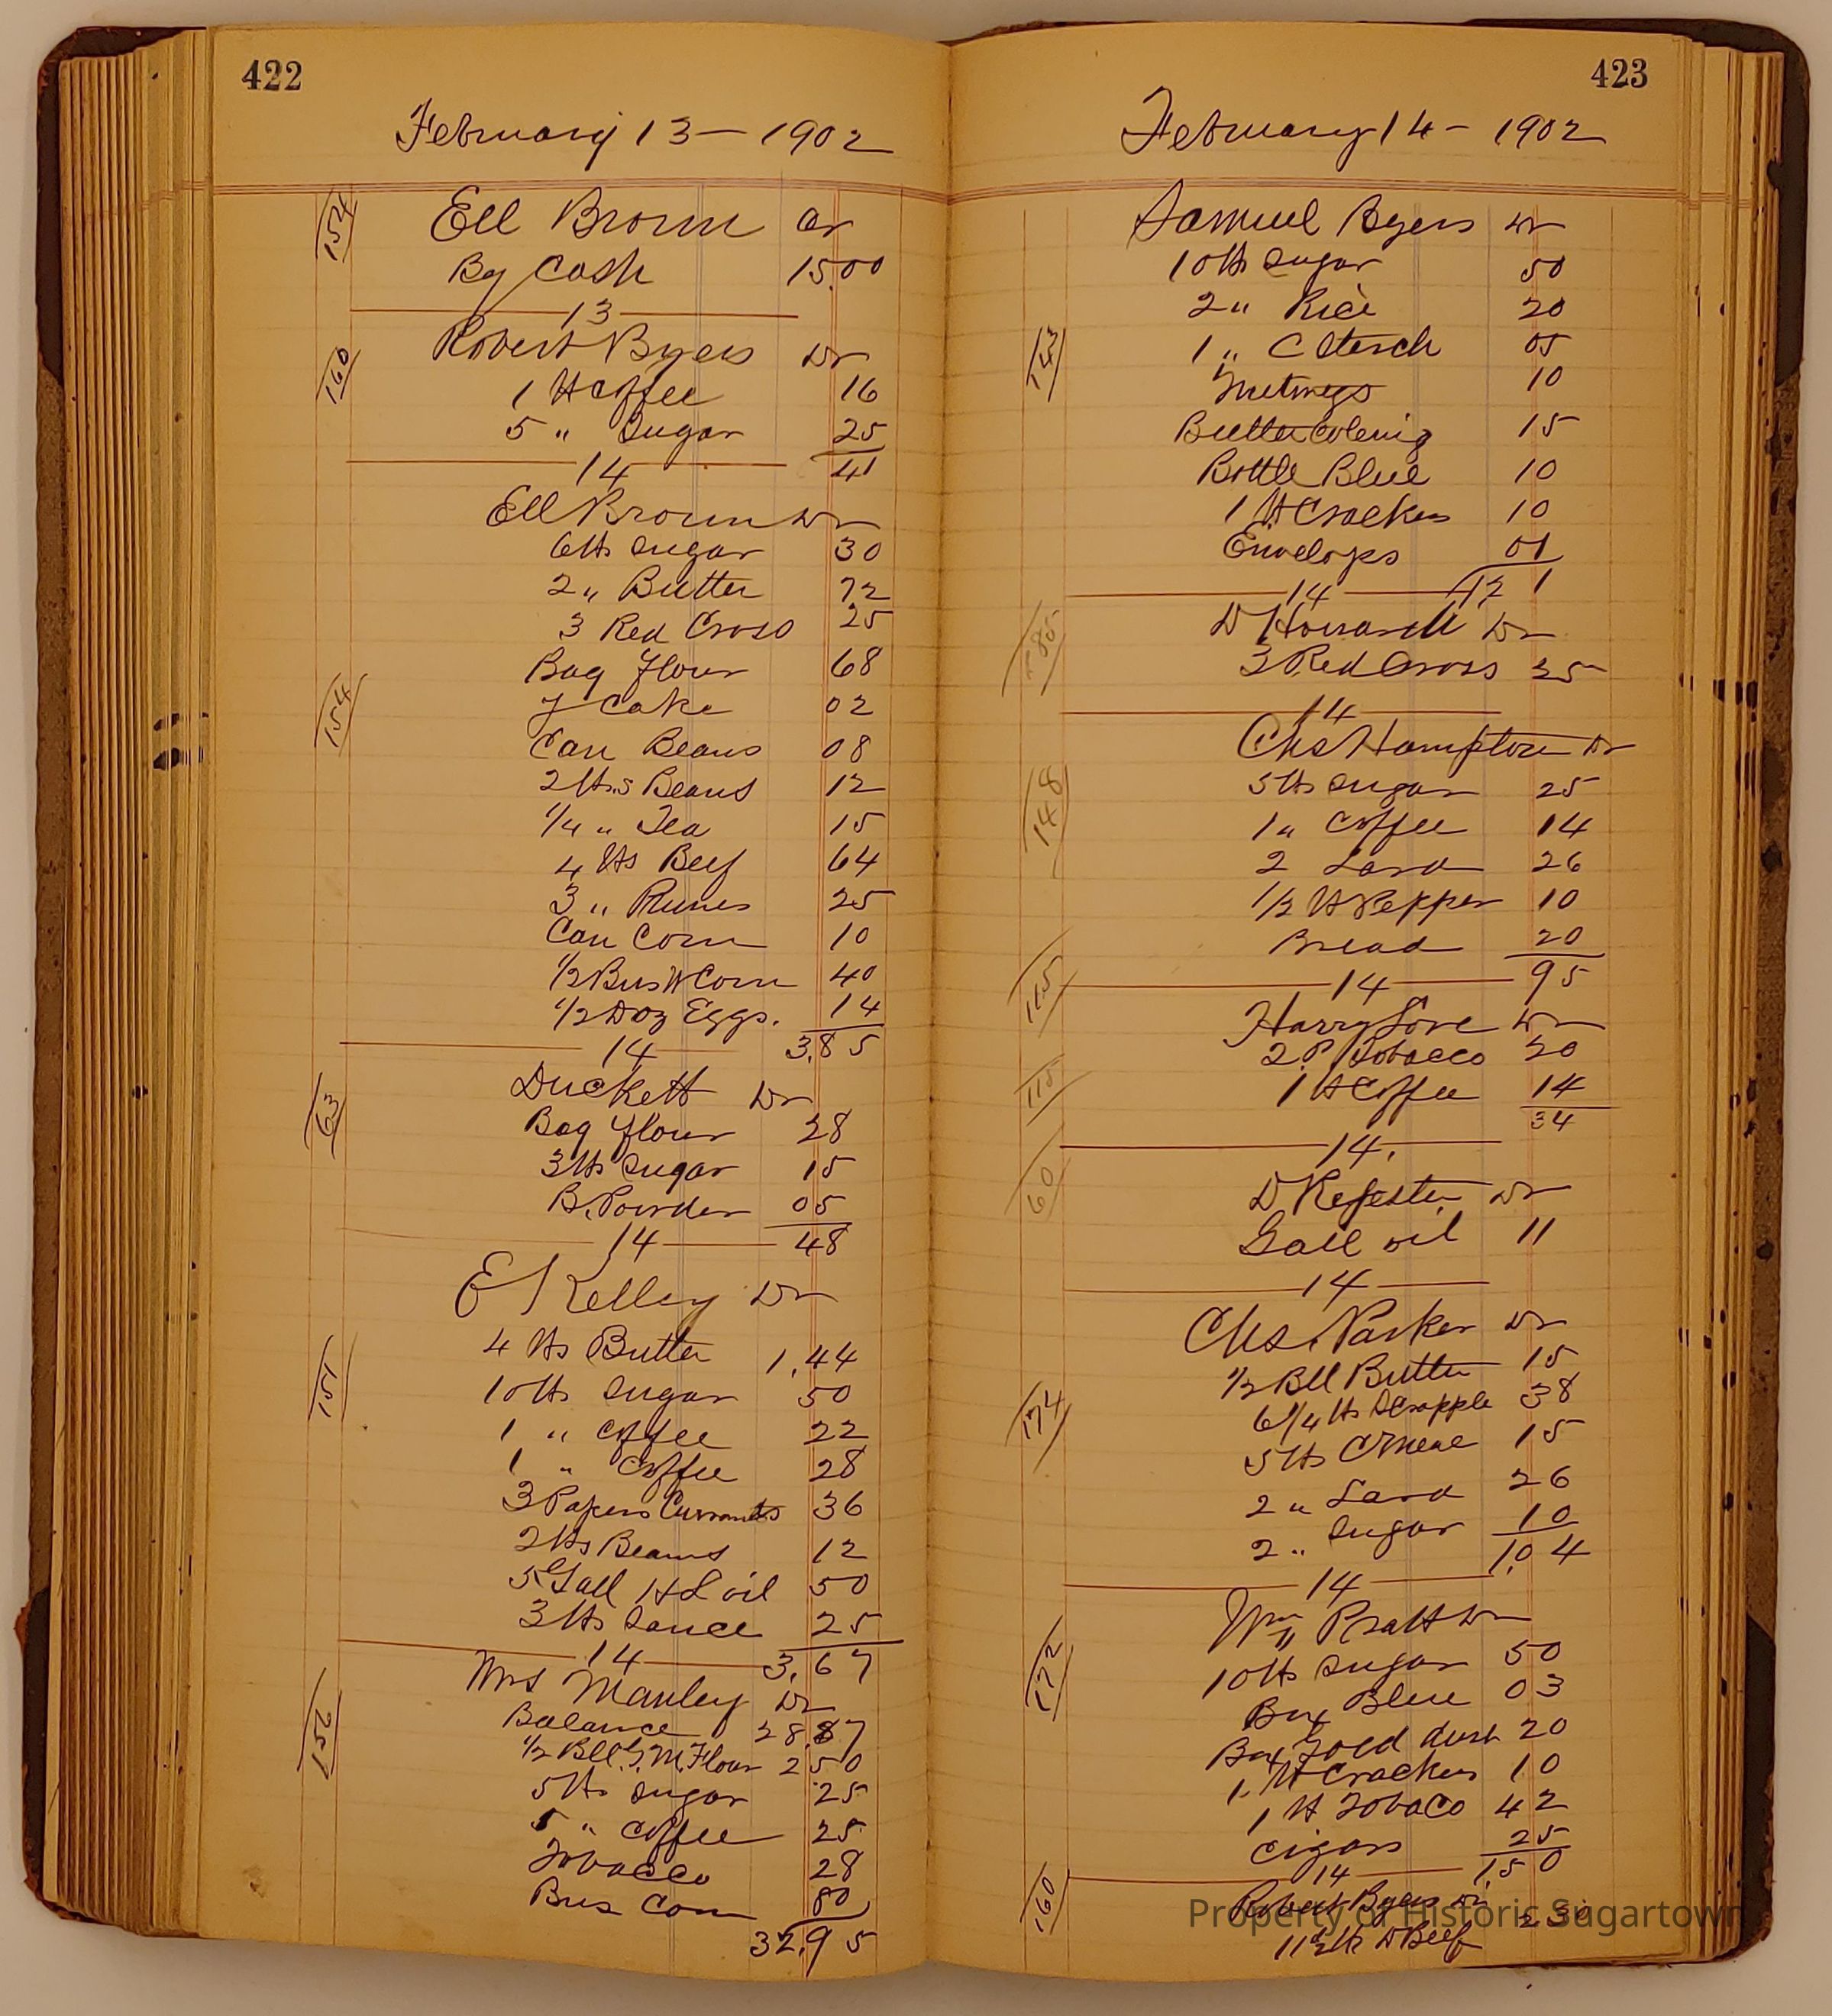 422
February 13 — 1902
154
Ell Brown Cr
By Cash 15.00
13
160
Robert Byers Dr
1 lb Coffee 16
5 " Sugar 25
14 41
Ell Brown Dr
6 lbs Sugar 30
2 " Butter 72
3 Red Cross 25
Bag Flour 68
154
Y Cake 02
Can Beans 08
2 lbs Beans 12
1/4 " Tea 15
4 lbs Beef 64
3 " Prunes 25
Can Corn 10
1/2 Bus W Corn 40
1/2 Doz Eggs. 14
14 3.85
63
Duckett Dr
Bag Flour 28
3 lbs Sugar 15
B. Powder 05
14 48
E Kelley Dr
151
4 lbs Butter 1.44
10 lbs Sugar 50
1 " Coffee 22
1 " Coffee 28
3 Papers Currants 36
2 lbs Beans 12
5 Gall H L oil 50
3 lbs Sauce 25
14 3.67
156
Mrs Manley Dr
Balance 28.87
1/2 Bll G.M. Flour 2 50
5 lbs Sugar 25
5 " Coffee 25
Tobacco 28
Bus Corn 80
32.95
423
February 14 - 1902
Samuel Byers Dr
10 lbs Sugar 50
2 " Rice 20
143
1 " C Starch 05
Nutmegs 10
Butter Colering 15
Bottle Blue 10
1 lb Crackers 10
Envelops 01
14 121
D Howarell Dr
3 Red Cross 25
14
Chs Hampton Dr
148
5 lbs Sugar 25
1 " Coffee 14
2 Lard 26
1/2 lb Pepper 10
Bread 20
14 95
115
Harry Love Dr
2 P Tobacco 20
115
1 lb Coffee 14
34
14.
60
D Regester Dr
Gall oil 11
14
Chs. Parker Dr
1/2 Bll Butter 15
174
6 1/4 lbs Scrapple 38
5 lbs C Meal 15
2 " Lard 26
2 " Sugar 10
14 1.04
Wm Pratt Dr
172
10 lbs Sugar 50
Box Blue 03
Box Gold dust 20
1 lb Crackers 10
1 lb Tobaco 42
Cigars 25
14 1.50
160
Robert Byers Dr
11 1/2 lb D Beef 2 30
Property of Historic Sugartown